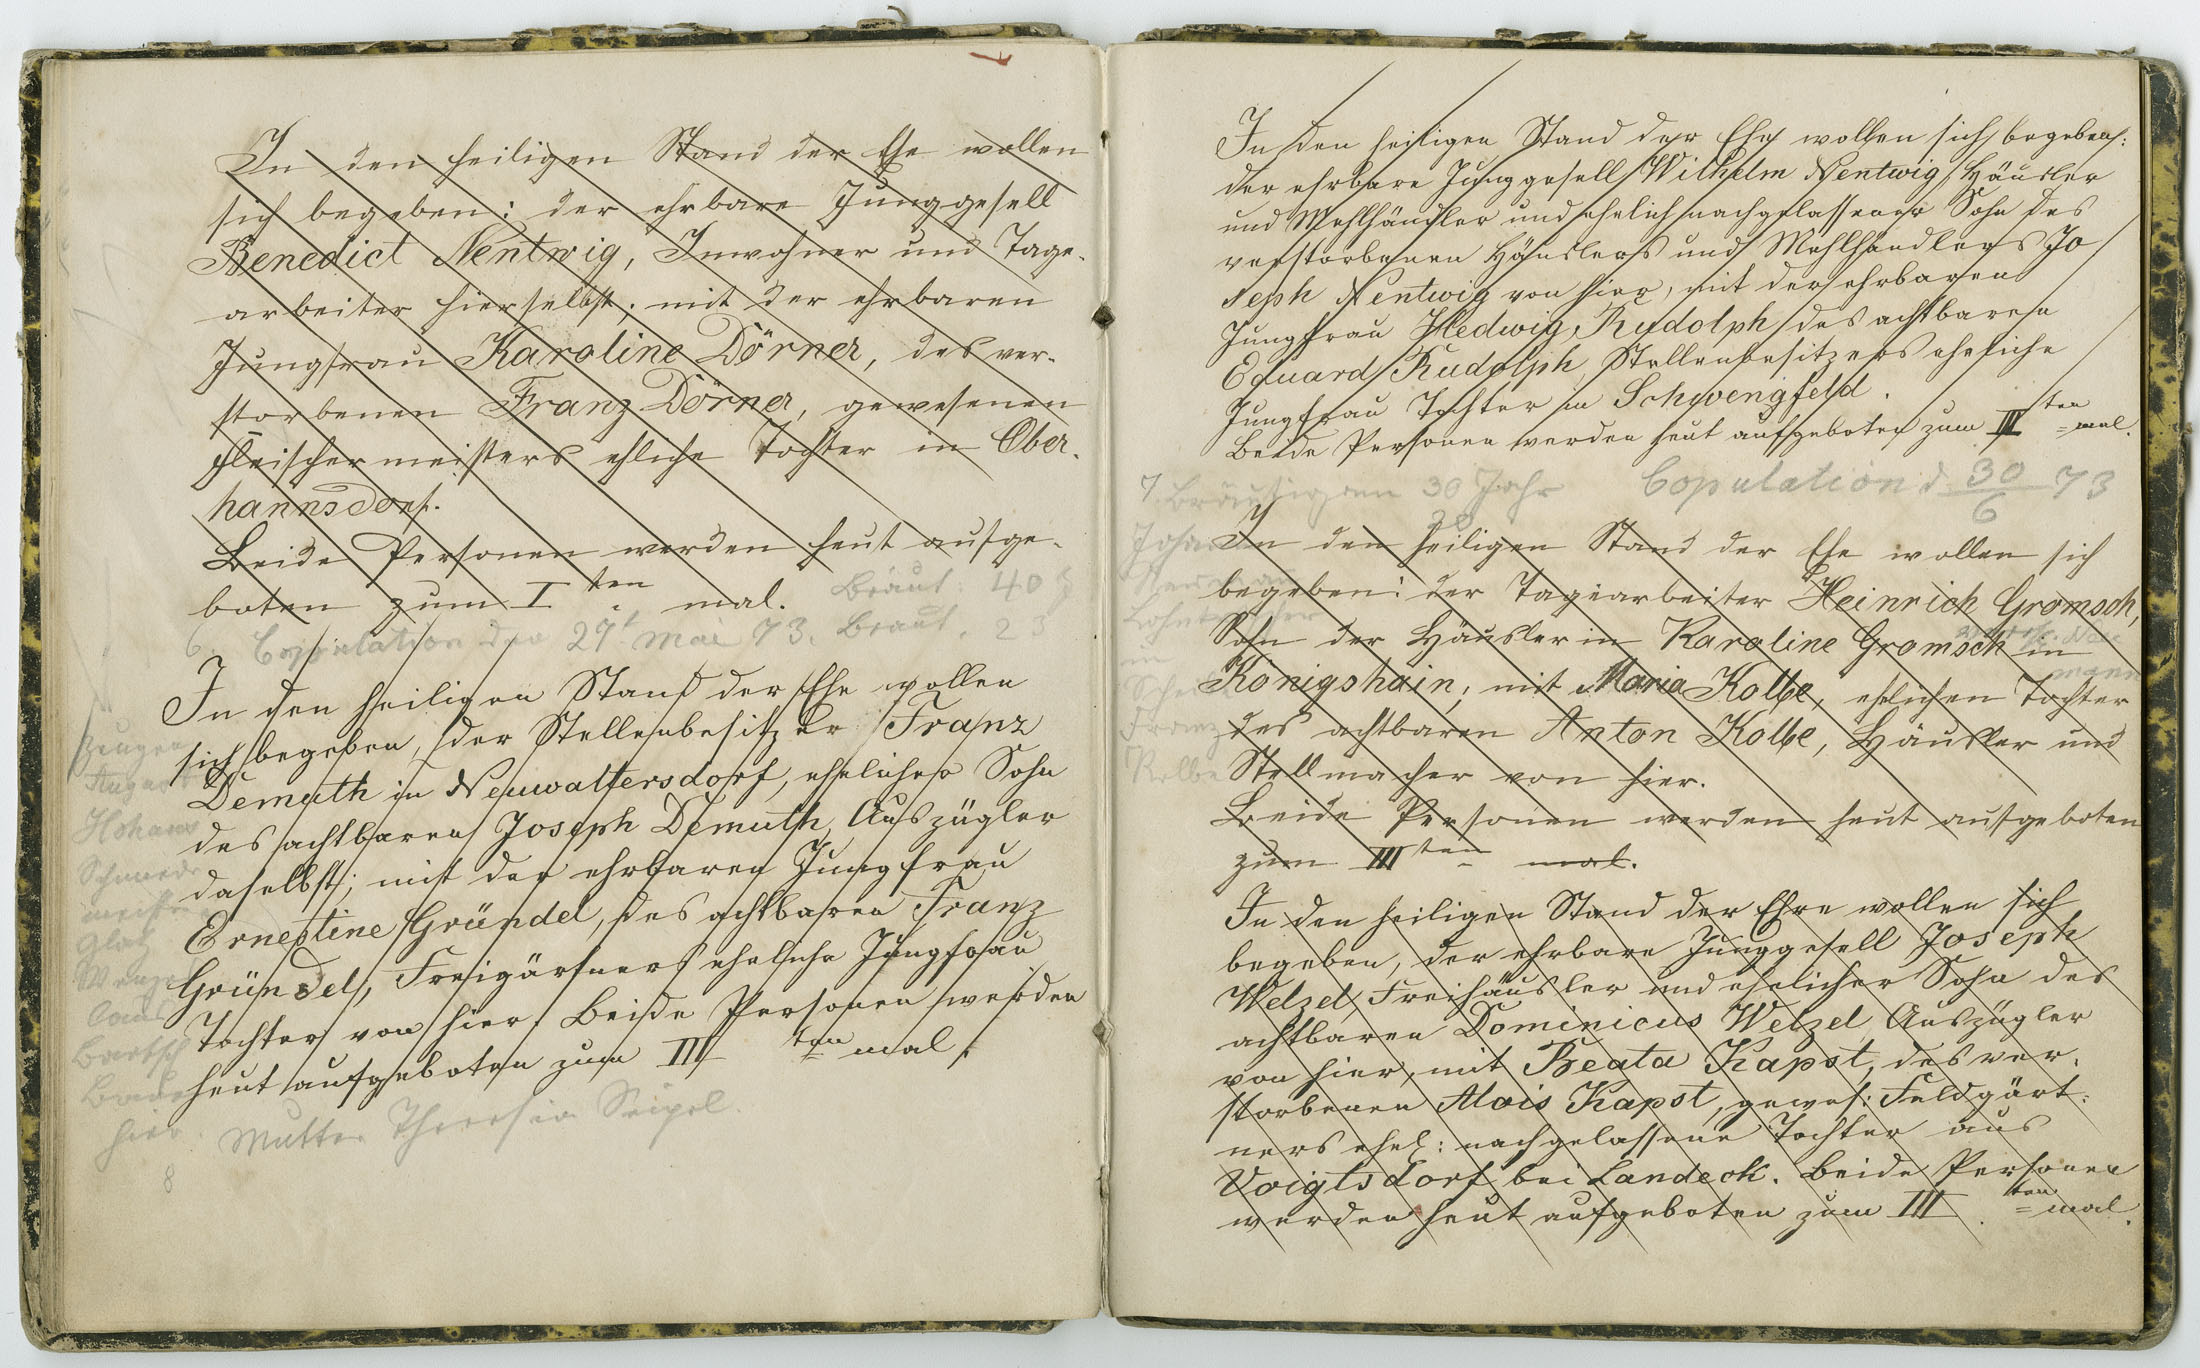 In den heiligen Stand der Ehe wollen
sich begeben: der ehrbare Junggesell
Benedict Nentwig, Inwohner und Tage-
arbeiter hierselbst; mit der ehrbaren
Jungfrau Karoline Dörner, des ver-
storbenen Franz Dörner, gewesenen
Fleischermeisters ehliche Tochter in Ober-
hannsdorf.
Beide Personen werden heut aufge-
boten zum I ten mal. Bräut: 40
6. Copulation den 27t Mai 73. Braut. 23
In den heiligen Stand der Ehe wollen
sich begeben, der Stellenbesitzer Franz
Demuth in Neuwaltersdorf, ehelicher Sohn
des achtbaren Joseph Demuth, Auszügler
daselbst; mit der ehrbaren Jungfrau
Ernestine Gründel, des achtbaren Franz
Gründel, Freigärtners eheliche Jungfrau
Tochter von hier. Beide Personen werden
heut aufgeboten zum III ten mal.
Mutter Theresia Seipel.
Zeugen
August
Schmiede
meister
Glatz
Bartsch
hier.
8
In den heiligen Stand der Ehe wollen sich begeben:
der ehrbare Junggesell Wilhelm Nentwig, Häusler
und Mehlhändler und ehelich nachgelassener Sohn des
verstorbenen Häuslers und Mehlhändlers Jo
seph Nentwig von hier, mit der ehrbaren
Jungfrau Hedwig Rudolph des achtbaren
Eduard Rudolph, Stellenbesitzers eheliche
Jungfrau Tochter in Schwengfeld.
Beide Personen werden heut aufgeboten zum III ten mal.
7. Bräutigam 30 Jahr Copulation d. 30/6 73
20
In den heiligen Stand der Ehe wollen sich
begeben: der Tagearbeiter Heinrich Gromsch,
Sohn der Häuslerin Karoline Gromsch in
Königshain; mit Maria Kolbe, ehelichen Tochter
des achtbaren Anton Kolbe, Häusler und
Stellmacher von hier.
Beide Personen werden heut aufgeboten
zum III ten mal.
in
Franz
Kolbe
In den heiligen Stand der Ehre wollen sich
begeben, der ehrbare Junggesell Joseph
Welzel, Freihäusler und ehelicher Sohn des
achtbaren Dominicus Welzel Auszügler
von hier, mit Beata Kapst, des ver-
storbenen Alois Kapst, gewes: Feldgärt-
ners ehel: nachgelassene Tochter aus
Voigtsdorf bei Landeck. Beide Personen
werden heut aufgeboten zum III ten mal.